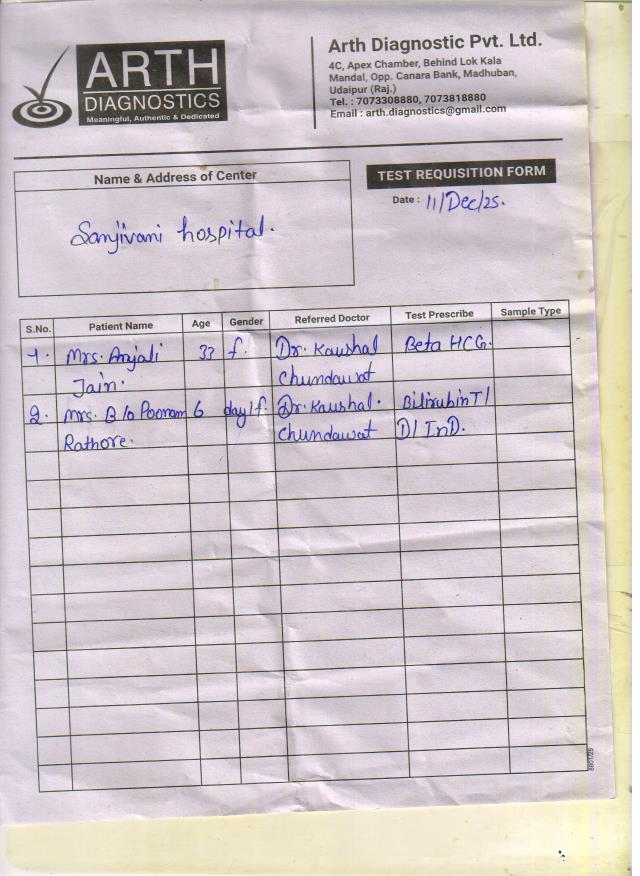 ARTH
DIAGNOSTICS
Meaningful, Authentic & Dedicated
Arth Diagnostic Pvt. Ltd.
4C, Apex Chamber, Behind Lok Kala
Mandal, Opp. Canara Bank, Madhuban,
Udaipur (Raj.)
Tel. : 7073308880, 7073818880
Email : arth.diagnostics@gmail.com
Name & Address of Center
Sanjivani hospital.
TEST REQUISITION FORM
Date : 11/Dec/25.
S.No. Patient Name Age Gender Referred Doctor Test Prescribe Sample Type
1. Mrs. Anjali 33 f. Dr. Kaushal Beta HCG.
Jain. Chundawat
2. Mrs. B/o Poonam 6 day/f. Dr. Kaushal. Bilirubin T/
Rathore. Chundawat D/ InD.